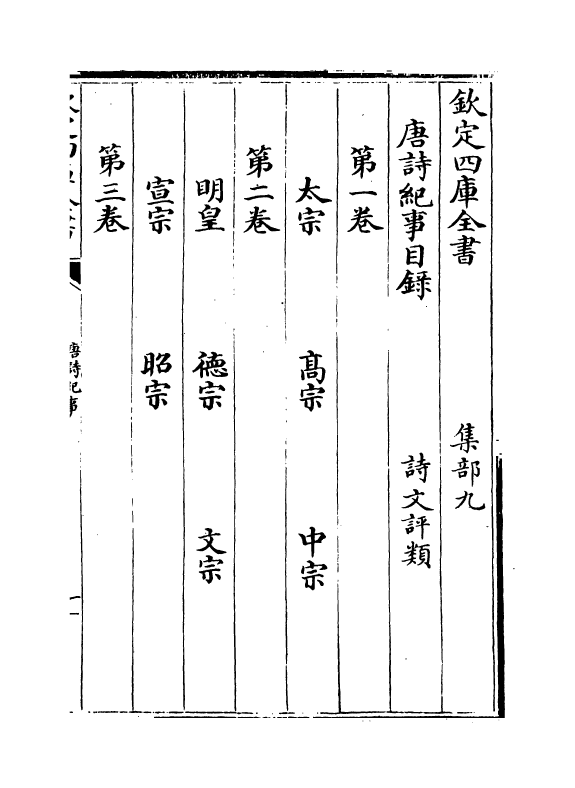 欽定四庫全書　集部九
唐詩紀事目録　詩文評類
第一卷
太宗　髙宗　中宗
第二卷
明皇　德宗　文宗
宣宗　昭宗
第三卷
唐詩紀事
一